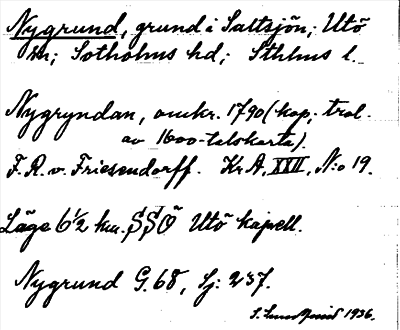 Nygrund, grund i Saltsjön; Utö
sn; Sotholms hd; Sthlms l.
Nygryndan, omkr. 1790 (kop. trol.
av 1600-talskarta).
F. R. v. Friesendorff. Kr A, XXII, N:o 19.
Läge 6½ km. SSÖ Utö kapell.
Nygrund G. 68, Sj: 237.
1936.